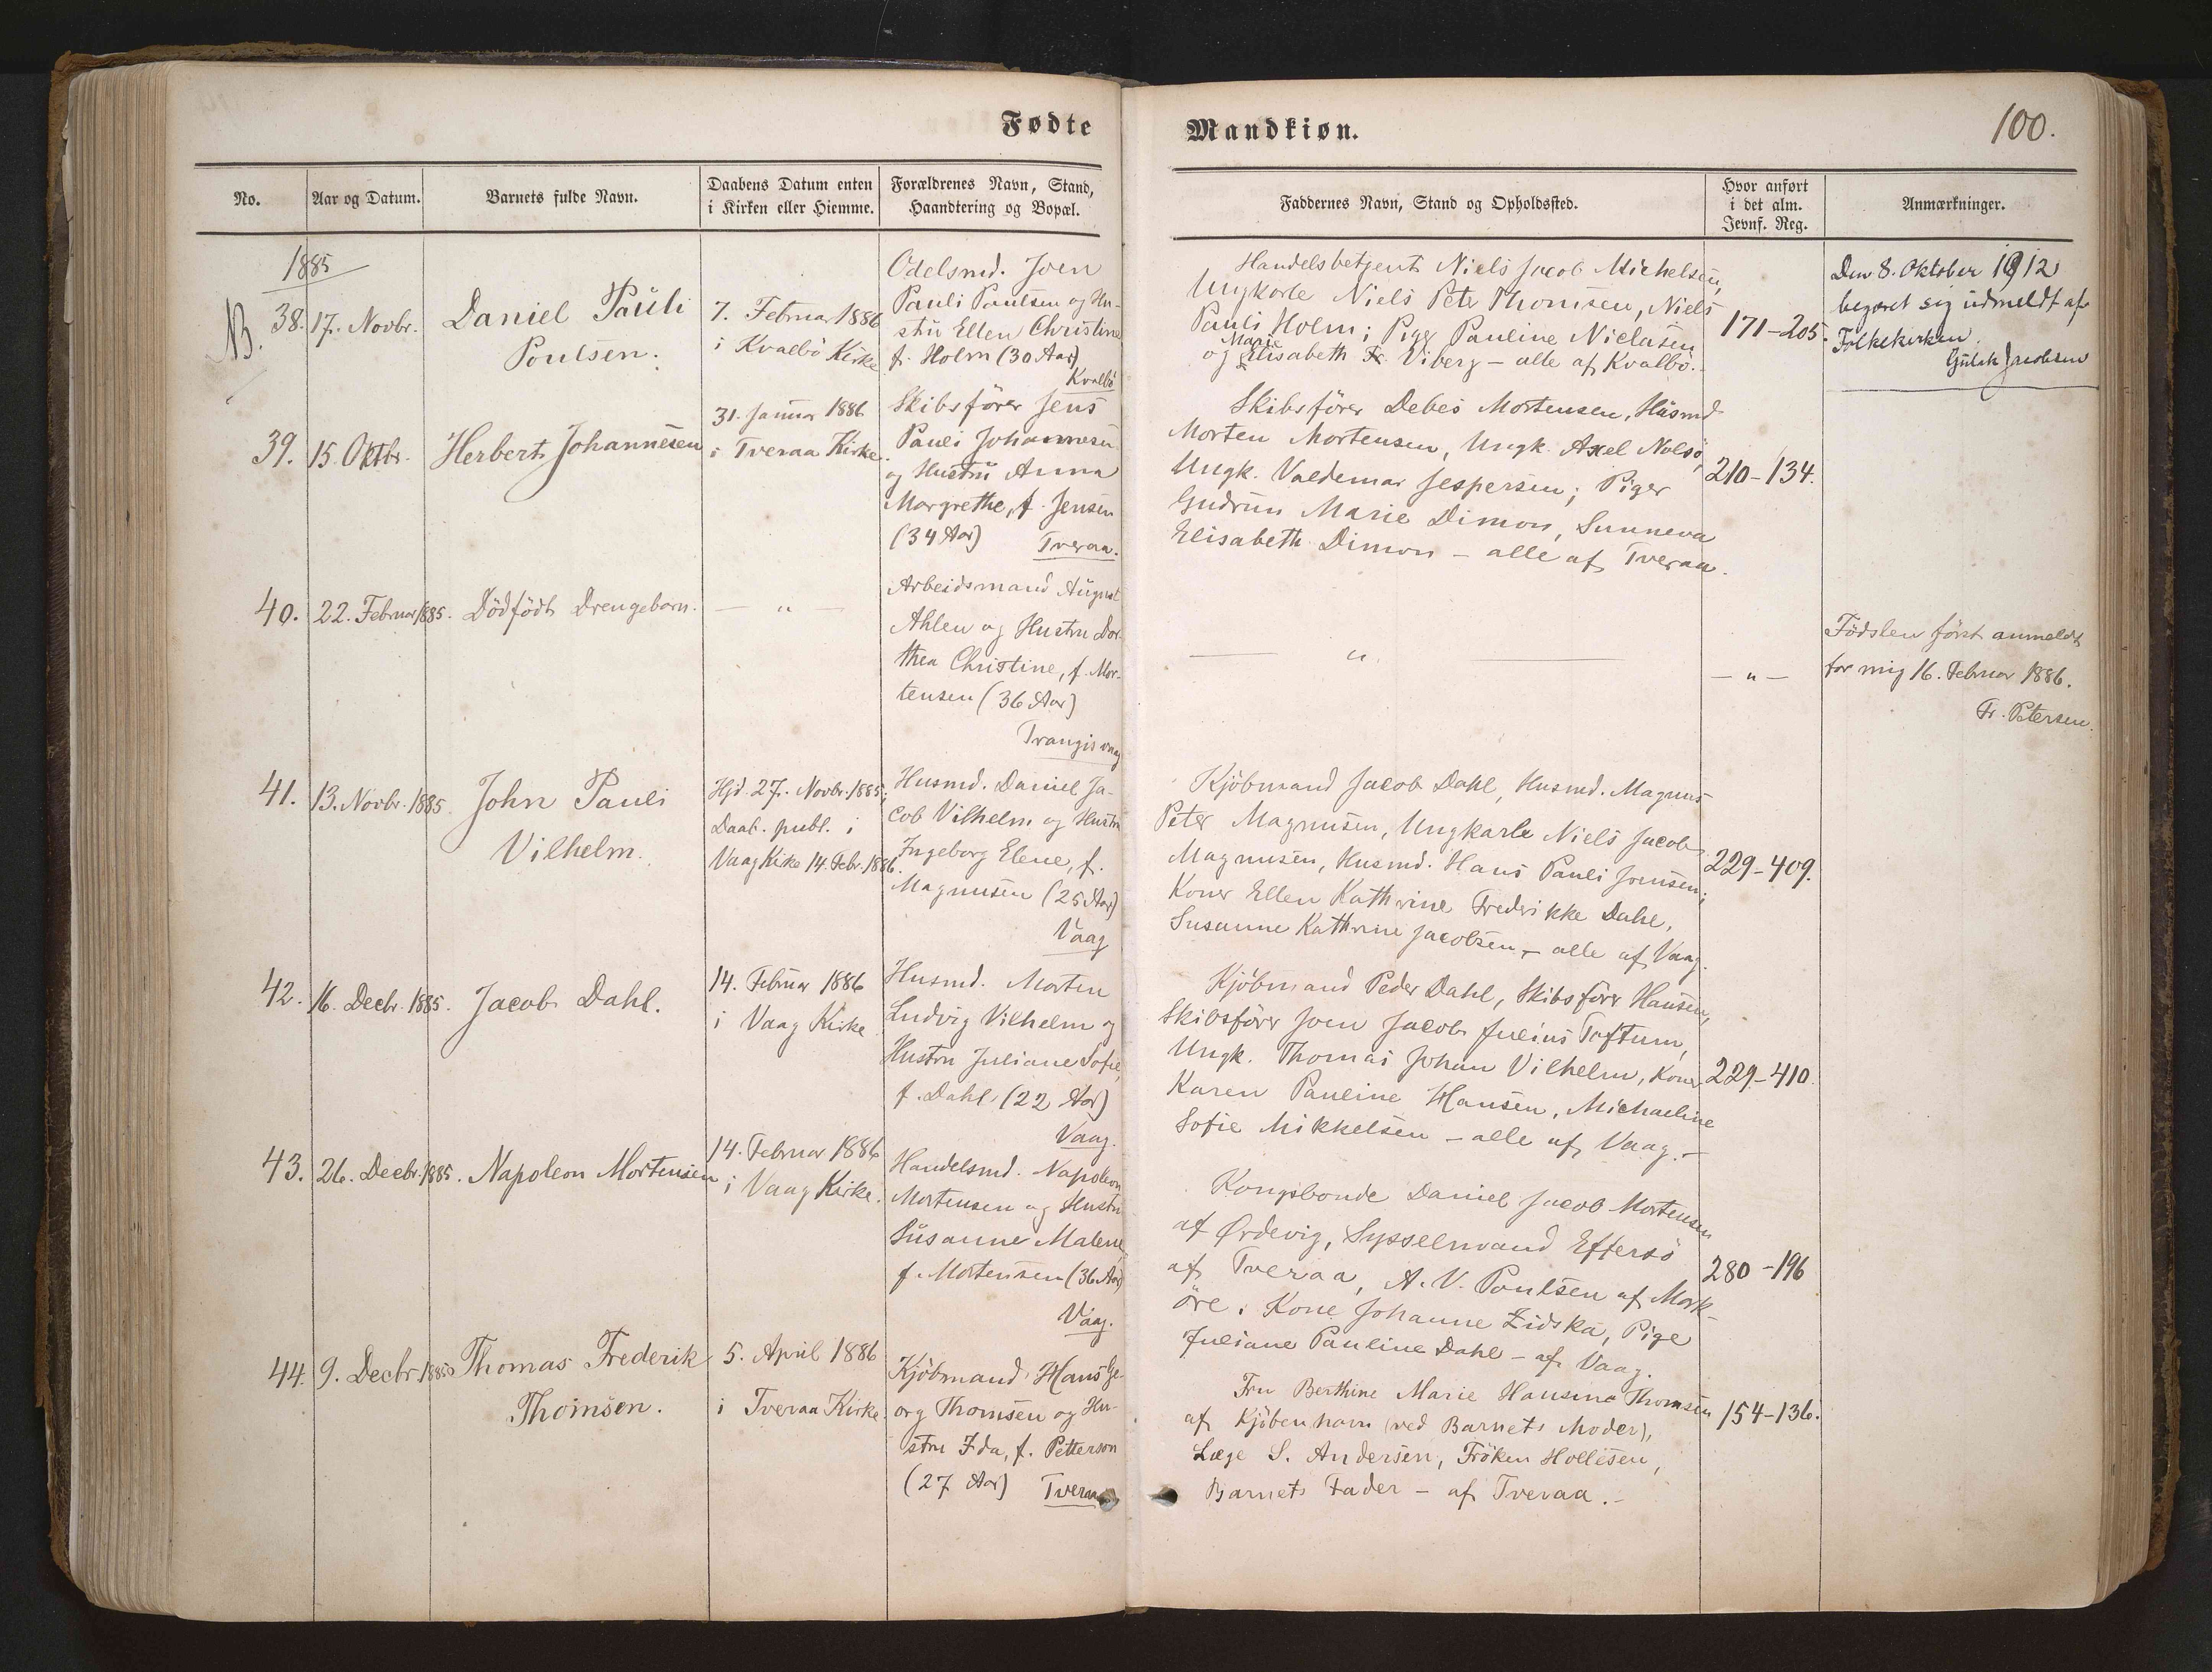 Fødte
Mandkiøn.
100.
No.
Aar og Datum.
Barnets fulde Navn.
Daabens Datum enten
i Kirken eller Hiemme.
Forældrenes Navn, Stand,
Haandtering og Bopæl.
Faddernes Navn, Stand og Opholdssted.
Hvor anført
i det alm.
Jevnf. Reg.
Anmærkninger.
1885
NB.
38.
17. Novbr.
Daniel Pauli
Poulsen.
7. Februar 1886
i Kvalbö Kirke
Odelsmd. Joen
Pauli Paulsen og Hu-
stru Ellen Christine
f. Holm (30 Aar)
Kvalbö
Handelsbetjent Niels Jacob Michelsen,
Ungkarle Niels Peter Thomsen, Niels
Pauli Holm; Pige Pauline Niclasen
Marie
og Elisabeth Fr. Viberg - alle af Kvalbö.
171-205.
Den 8. Oktober 1912
begæret sig udmeldt af
Folkekirken.
Jacobsen
39.
15. Oktbr.
Herbert Johannesen
31. Januar 1886
i Tveraa Kirke.
Skibsförer Jens
Pauli Johannesen
og Hustru Anna
Margrethe, f. Jensen
(34 Aar)
Tveraa.
Skibsförer Debes Mortensen, Husmd
Morten Mortensen, Ungk. Axel Nolsö,
Ungk. Valdemar Jespersen; Piger
Gudrun Marie Dimon, Sunneva
Elisabeth Dimon - alle af Tveraa.
210-134.
40.
22. Februar 1885.
Dödfödt Drengebarn.
— " —
Arbeidsmand August
Ahlen og Hustru Dor-
thea Christine, f. Mor-
tensen (36 Aar)
Trangisvaag
— " —
— " —
Födslen först anmeldt
for mig 16. Februar 1886.
Fr. Petersen.
41.
13. Novbr. 1885.
John Pauli
Vilhelm.
Hjd. 27. Novbr. 1885;
Daab. publ. i
Vaag Kirke 14. Febr. 1886.
Husmd. Daniel Ja-
cob Vilhelm og Hustru
Ingeborg Elene, f.
Magnusen (25 Aar)
Vaag
Kjöbmand Jacob Dahl, Husmd. Magnus
Peter Magnusen, Ungkarle Niels Jacob
Magnusen, Husmd. Hans Pauli Joensen;
Koner Ellen Kathrine Frederikke Dahl,
Susanne Kathrine Jacobsen, - alle af Vaag.
229-409.
42.
16. Decbr. 1885.
Jacob Dahl.
14. Februar 1886
i Vaag Kirke.
Husmd. Morten
Ludvig Vilhelm og
Hustru Juliane Sofie,
f. Dahl (22 Aar)
Vaag.
Kjöbmand Peder Dahl, Skibsförer Hansen,
Skibsförer Joen Jacob Julius Toftum,
Ungk. Thomas Johan Vilhelm, Koner
Karen Pauline Hansen, Michaeline
Sofie Mikkelsen - alle af Vaag.-
229-410.
43.
26. Decbr. 1885.
Napoleon Mortensen
14. Februar 1886
i Vaag Kirke.
Handelsmd. Napoleon
Mortensen og Hustru
Susanne Malene,
f. Mortensen (36 Aar)
Vaag.
Kongsbonde Daniel Jacob Mortensen
af Ørdevig, Sysselmand Effersö
af Tveraa, A. V. Poulsen af Mork-
öre. Kone Johanne Zidska, Pige
Juliane Pauline Dahl - af Vaag.
280-196
44.
9. Decbr. 1885
Thomas Frederik
Thomsen.
5. April 1886
i Tveraa Kirke.
Kjöbmand Hans Ge-
org Thomsen og Hu-
stru Ida, f. Petterson
(27 Aar)
Tveraa
Fru Berthine Marie Hansine Thomsen
af Kjöbenhavn (ved Barnets Moder),
Læge S. Andersen, Fröken Hollesen,
Barnets Fader - af Tveraa.-
154-136.